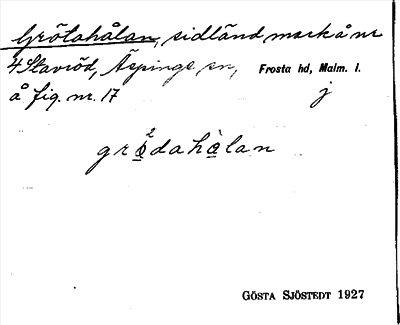 Grötahålan, sidländ mark å nr
4 Slavröd, Äspinge sn, Frosta hd, Malm. l.
å fig. nr. 17 j
2
grödahålan
GÖSTA SJÖSTEDT 1927